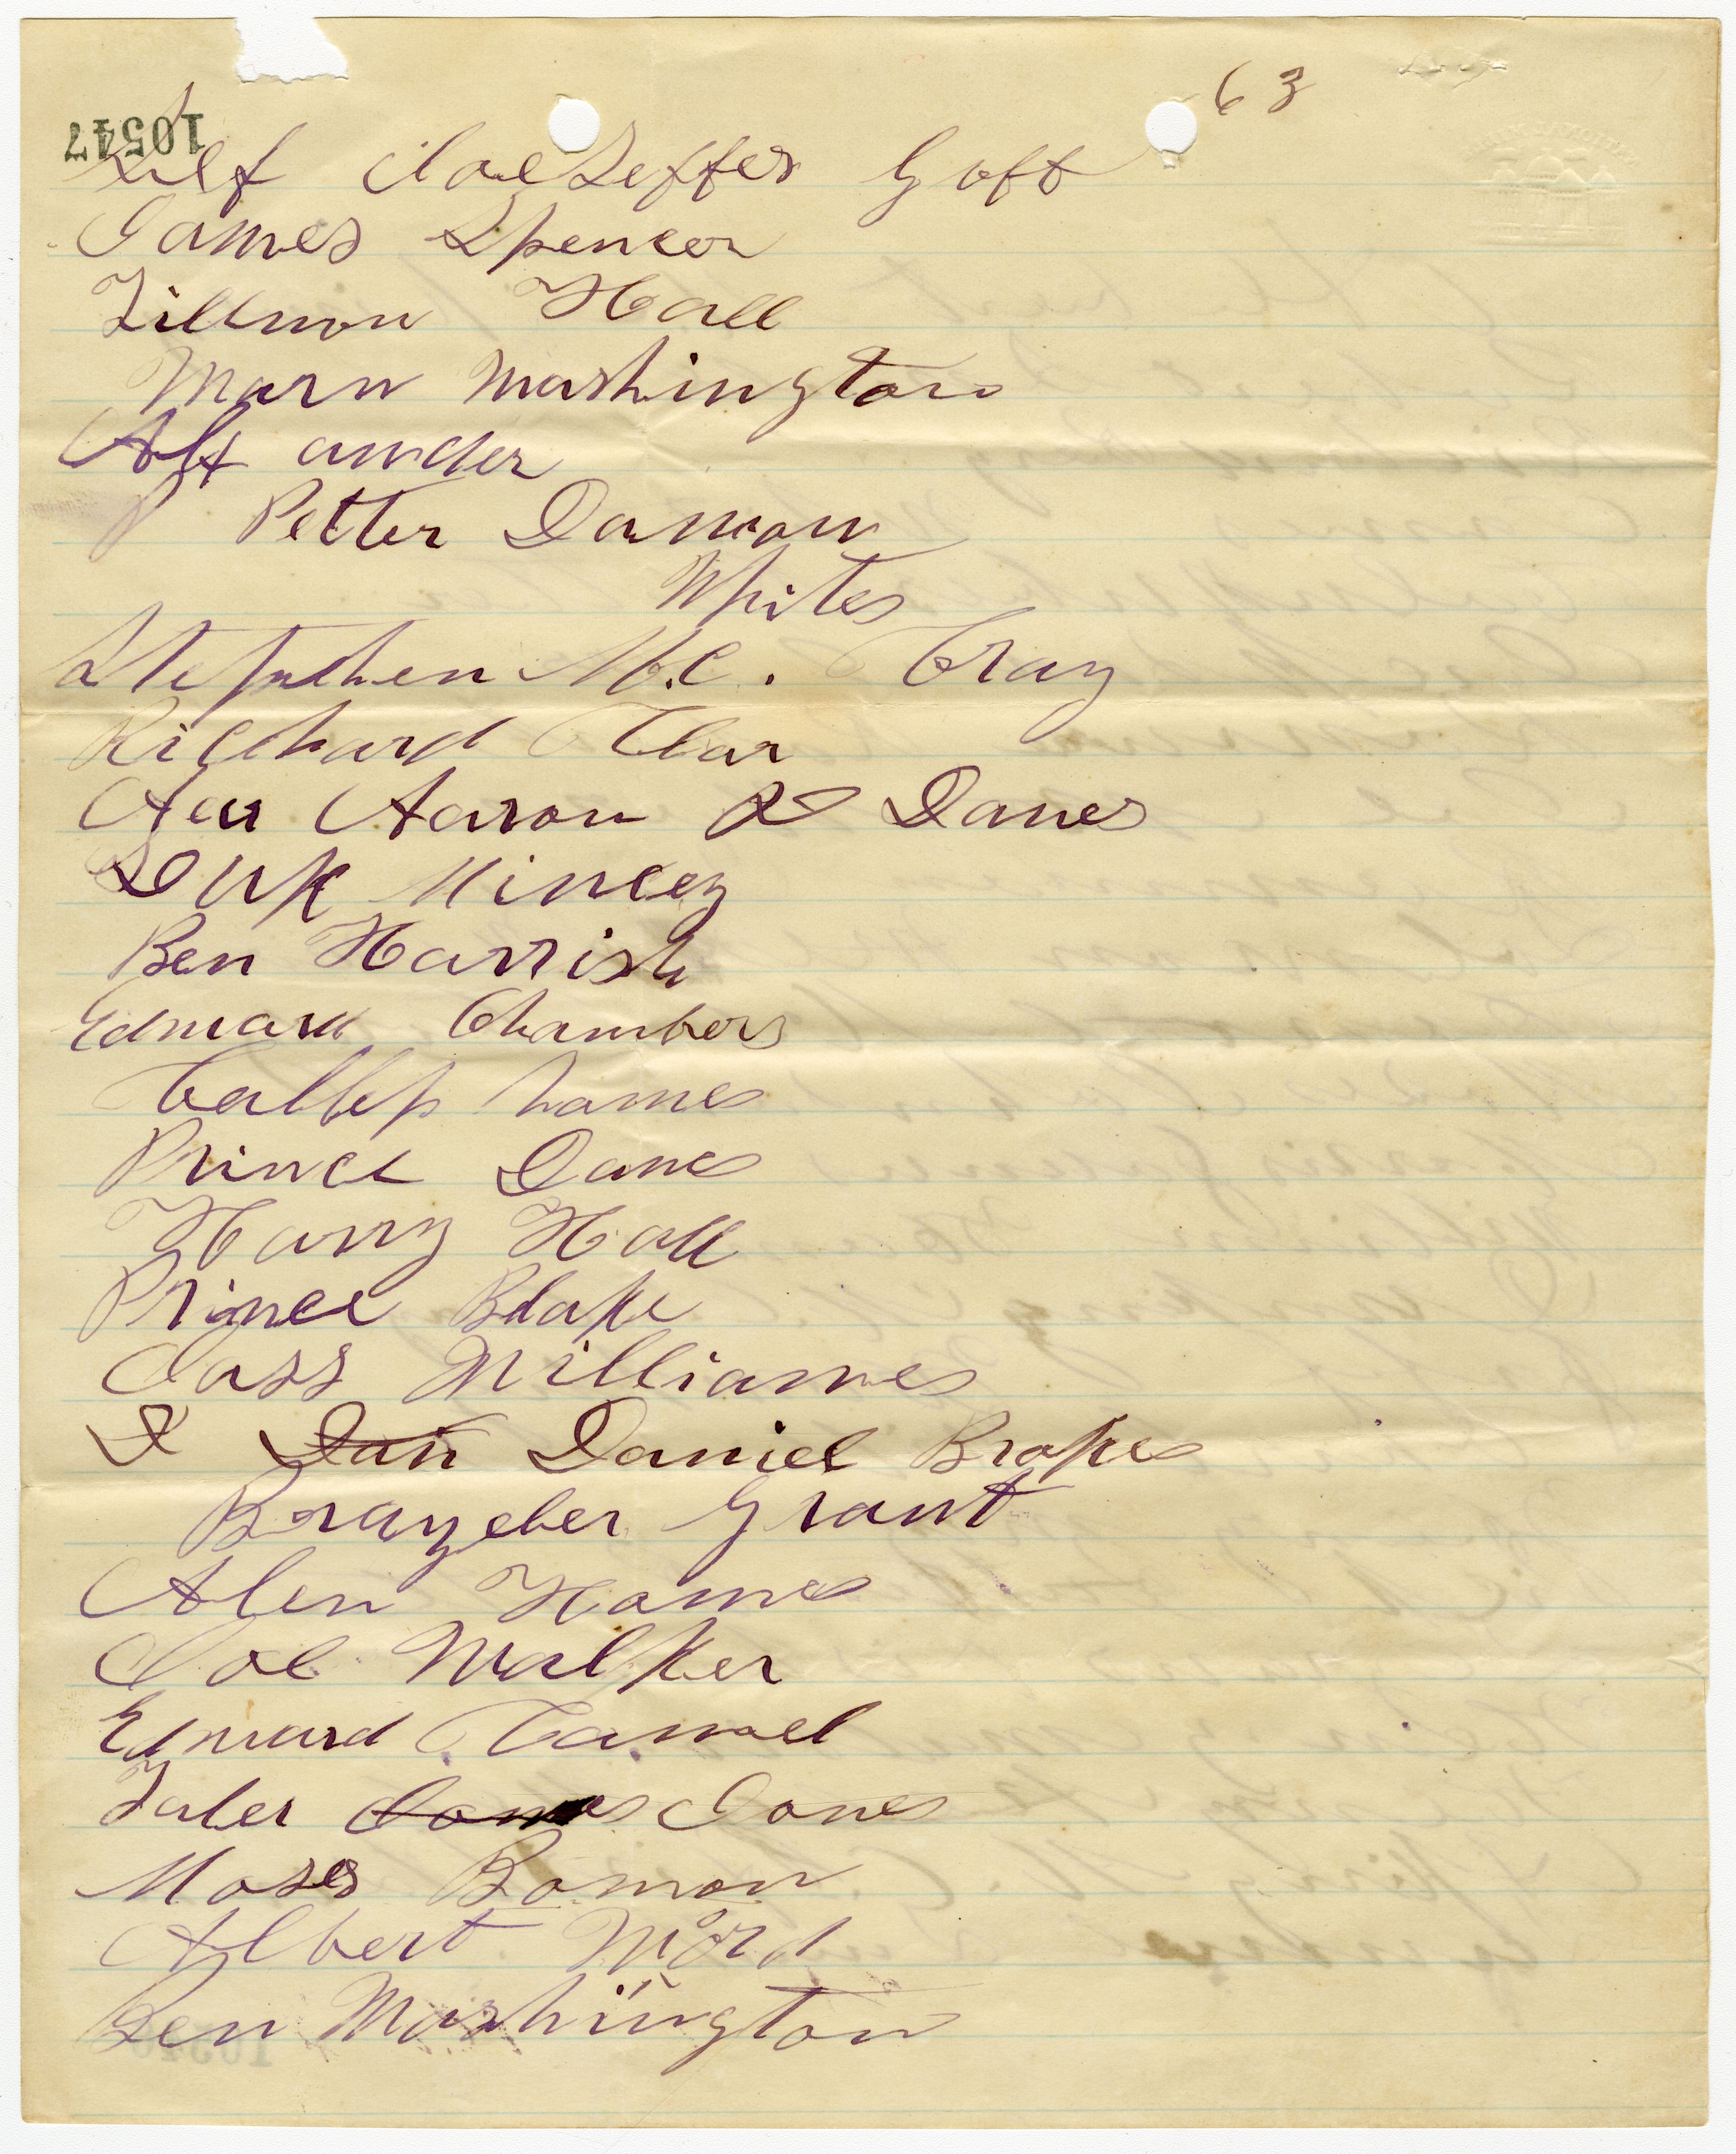 63
10547
Self Joe Zeffer Goft
James Spencer
Tillmon Hall
Marn Washington
Alf ander
P Petter Damon
Whites
Stephen M.C. Cray
Ricchard Clar
Aaron R Danes
Duk Mincey
Ben Harrish
Edward Chambers
Callep homes
Prince Danes
Harry Hall
Prince Blake
Joss Williames
D Dan Daniel Brokes
Brayeler Grant
Alen Homes
Joe Walker
Edward Camel
Taler Jones Jones
Moses Bomon
Albert Word
Ben Washington